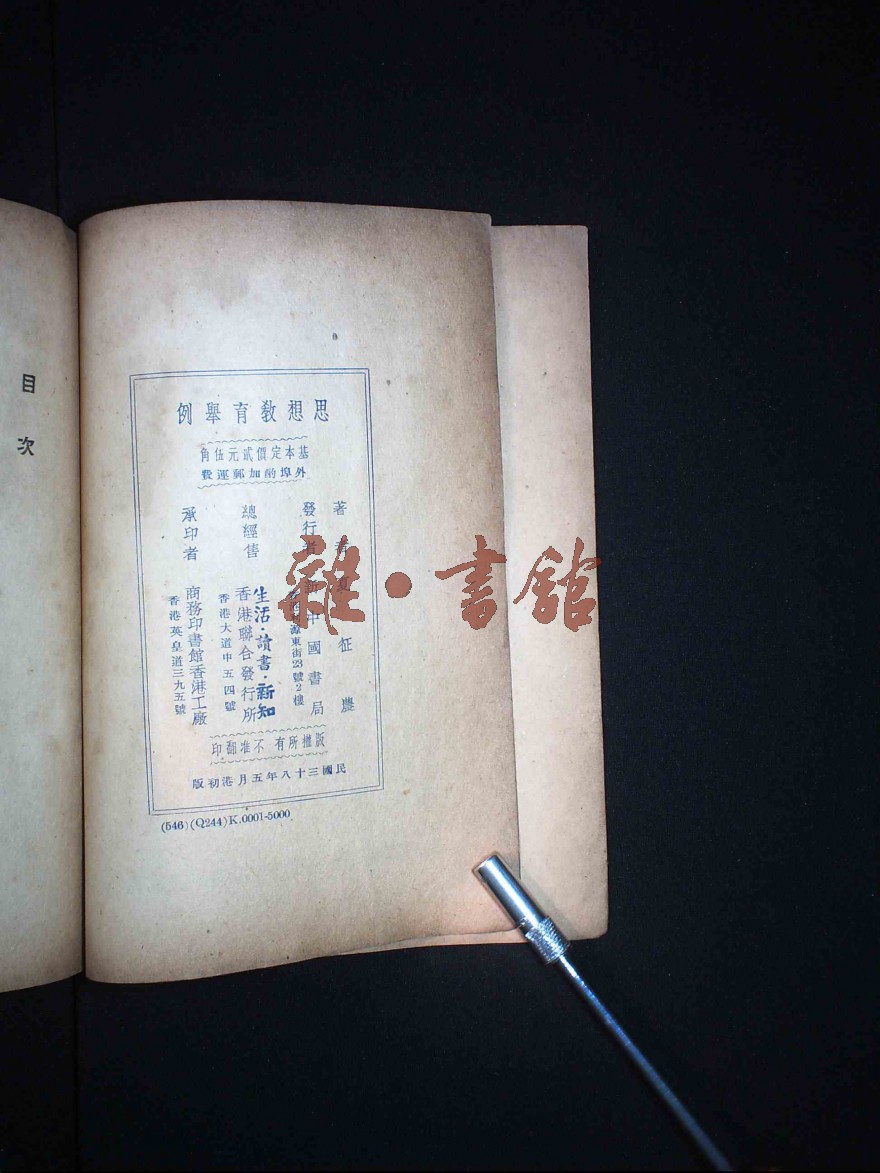 目次
思想教育舉例
基本定價貳元伍角
外埠酌加郵運費
著者 夏征農
發行者 新中國書局
源東街23號2樓
總經售 生活·讀書·新知
香港聯合發行所
香港大道中五四號
承印者 商務印書館香港工廠
香港英皇道三九五號
版權所有 不准翻印
民國三十八年五月港初版
(546)(Q244)K.0001-5000
雜·書館